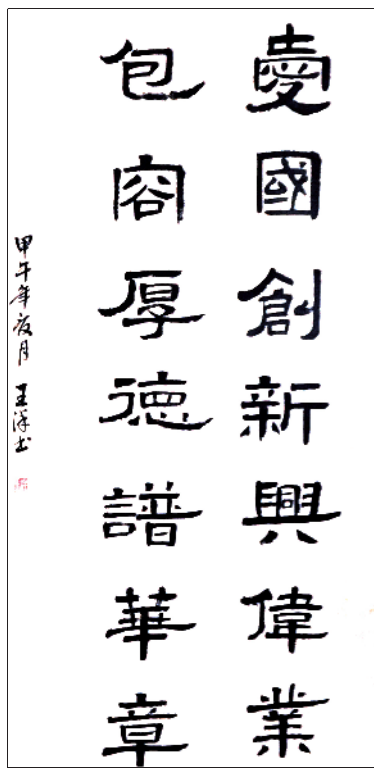 愛國創新興偉業
包容厚德譜華章
甲午年夜月 王洋书